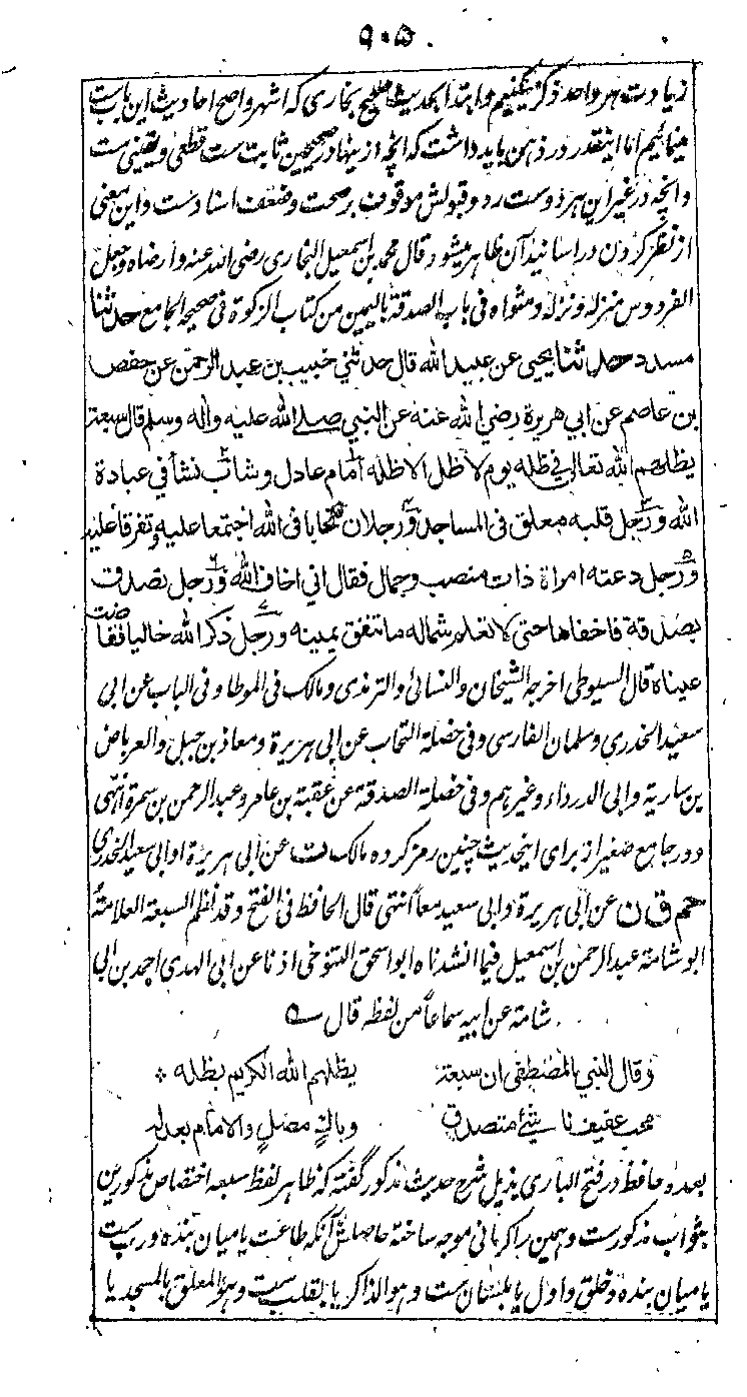 ۹۰۵
زیادت هر واحد ذکر میکنیم و ابتدا بحدیث صحیح بخاری که اشهر و اصح احادیث این باب ست
مینمائیم اما اینقدر در ذهن باید داشت که انچه ازینها در صحیحین ثابت ست قطعی و یقینی ست
و انچه در غیر این هر دوست رد و قبولش موقوف بر صحت و ضعف اسنادست و این معنی
از نظر کردن در اسانید آن ظاهر میشود قال محمد بن اسمعیل البخاری رضی الله عنه و ارضاه وجعل
الفردوس منزله و نزله و مثواه فی باب الصدقة بالیمین من کتاب الزکوة فی صحیحه الجامع حدثنا
مسدد حدثنا یحیی عن عبید الله قال حدثنی خبیب بن عبد الرحمن عن حفص
بن عاصم عن ابی هریرة رضی الله عنه عن النبی صلی الله علیه واله وسلم قال سبعة
یظلهم الله تعالی فی ظله یوم لا ظل الا ظله امام عادل وشاب نشأ فی عبادة
الله ورجل قلبه معلق فی المساجد ورجلان تحابا فی الله اجتمعا علیه وتفرقا علیه
ورجل دعته امراة ذات منصب وجمال فقال انی اخاف الله ورجل تصدق
بصدقة فاخفاها حتی لا تعلم شماله ما تنفق یمینه ورجل ذکر الله خالیا ففاضت
عیناه قال السیوطی اخرجه الشیخان والنسائی والترمذی ومالک فی الموطا وفی الباب عن ابی
سعید الخدری وسلمان الفارسی وفی خصلة التحاب عن ابی هریرة ومعاذ بن جبل والعرباض
بن ساریة وابی الدرداء وغیرهم وفی خصلة الصدقة عن عقبة بن عامر وعبد الرحمن بن سمرة انتهی
ودر جامع صغیر از برای اینحدیث چنین رمز کرده مالک ت عن ابی هریرة او ابی سعید الخدری
حم ق ن عن ابی هریرة وابی سعید معاً انتهی قال الحافظ فی الفتح وقد نظم السبعة العلامة
ابو شامة عبد الرحمن بن اسمعیل فیما انشدناه ابو اسحق التنوخی اذنا عن ابی الهدی احمد بن ابی
شامة عن ابیه سماعاً من لفظه قال
وقال النبی المصطفی ان سبعة یظلهم الله الکریم بظله
محب عفیف ناشئ متصدق وباک مصل والامام بعدله
بعده حافظ در فتح الباری بذیل شرح حدیث مذکور گفته که ظاهر لفظ سبعه اختصاص مذکورین
بثواب مذکورست و همین را کرمانی موجه ساخته حاصلش آنکه طاعت یا میان بنده و رب ست
یا میان بنده و خلق و اول یا بلسان ست و هو الذاکر یا بقلب ست و هو المعلق بالمسجد یا